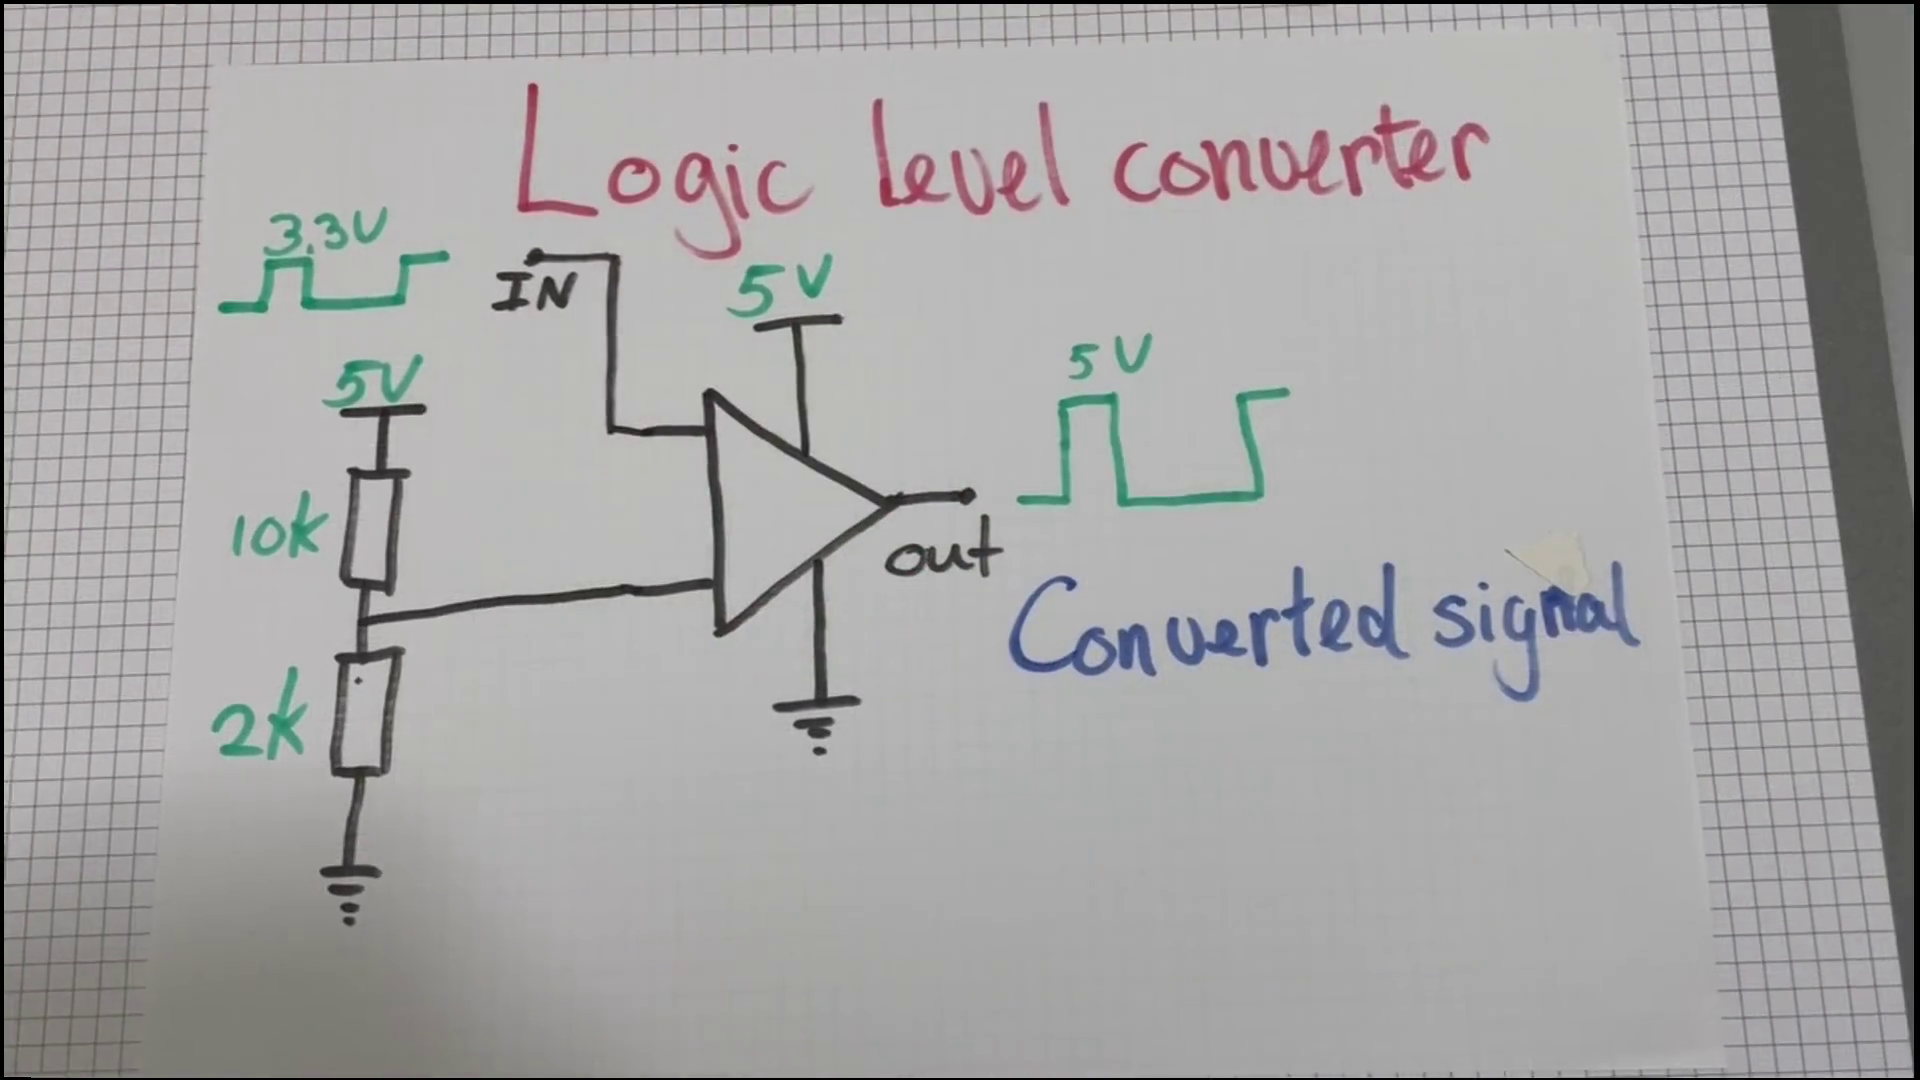 Logic level converter
3.3V
IN
5V
5V
5V
10k
out
Converted signal
2k